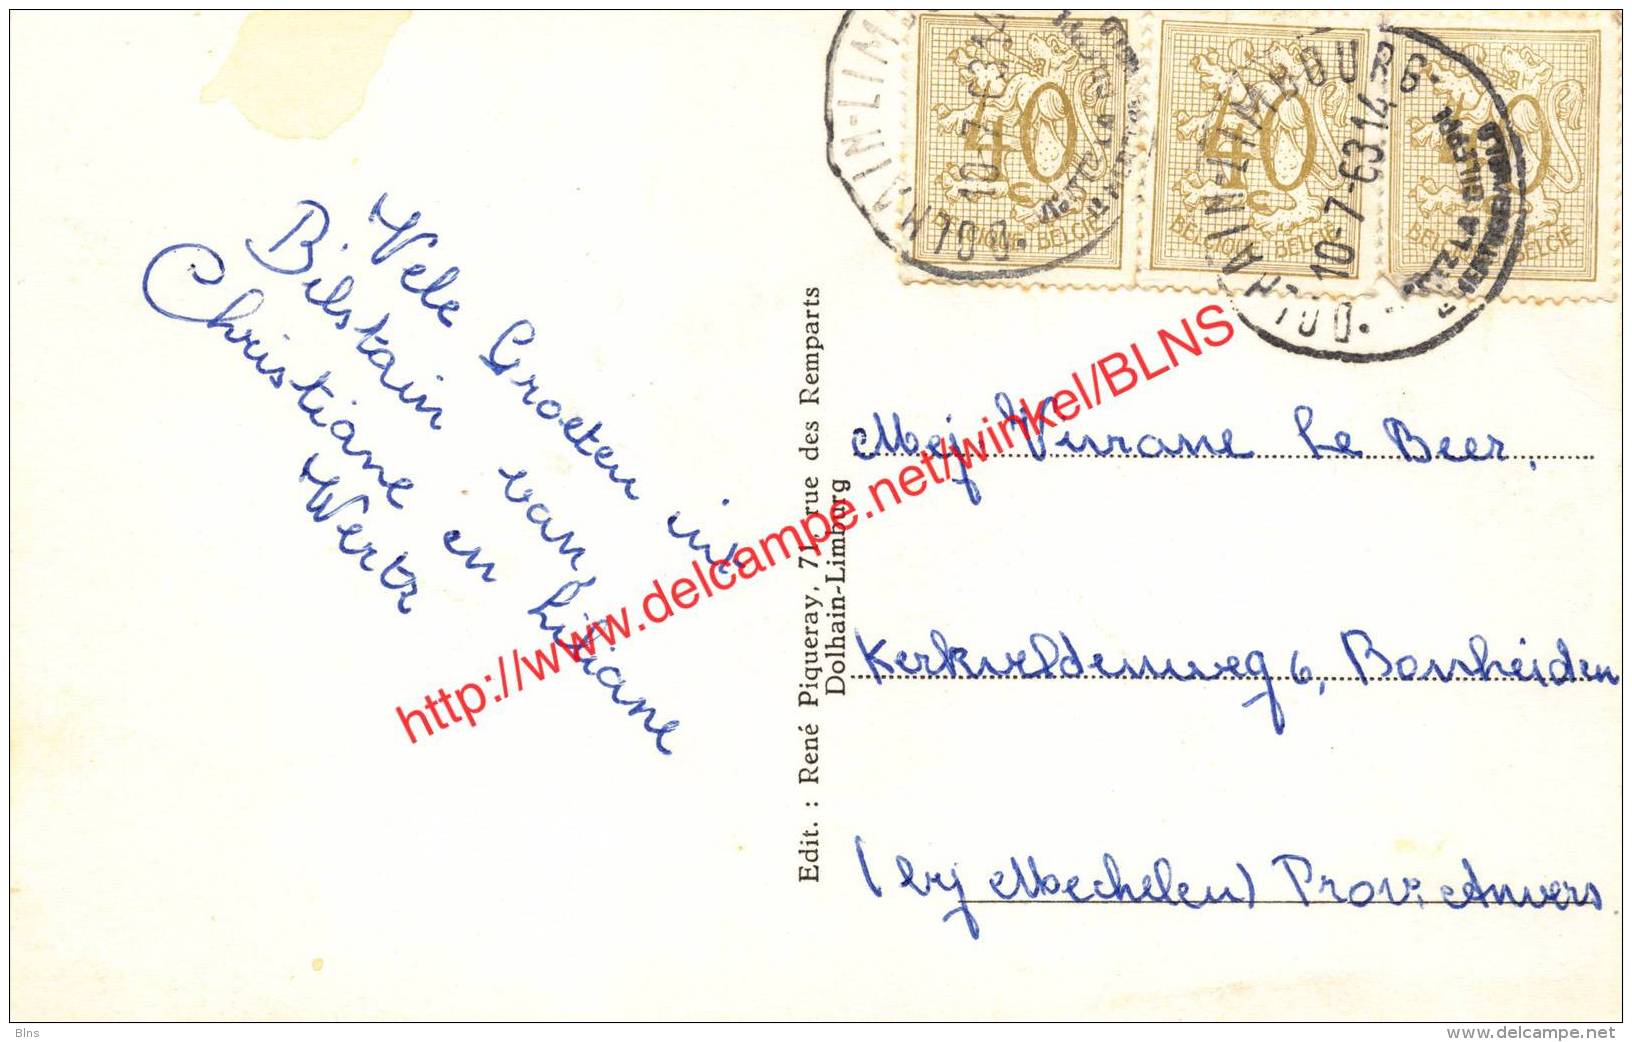 Vele Groeten uit
Bilstain van
Christiane en Liliane
Wertz
Edit. : René Piqueray, 71, rue des Remparts
Dolhain-Limburg
40 c
BELGIQUE BELGIË
40 c
BELGIQUE BELGIË
40
BELGIQUE BELGIË
DOLHAIN-LIMBOURG
10-7-63.14
DOLHAIN-LIMBOURG
10-7-63.14
Mej. Viviane Le Beer,
Kerkveldenweg 6, Bonheiden
(bij Mechelen) Prov: Anvers
http://www.delcampe.net/winkel/BLNS
Blns
www.delcampe.net